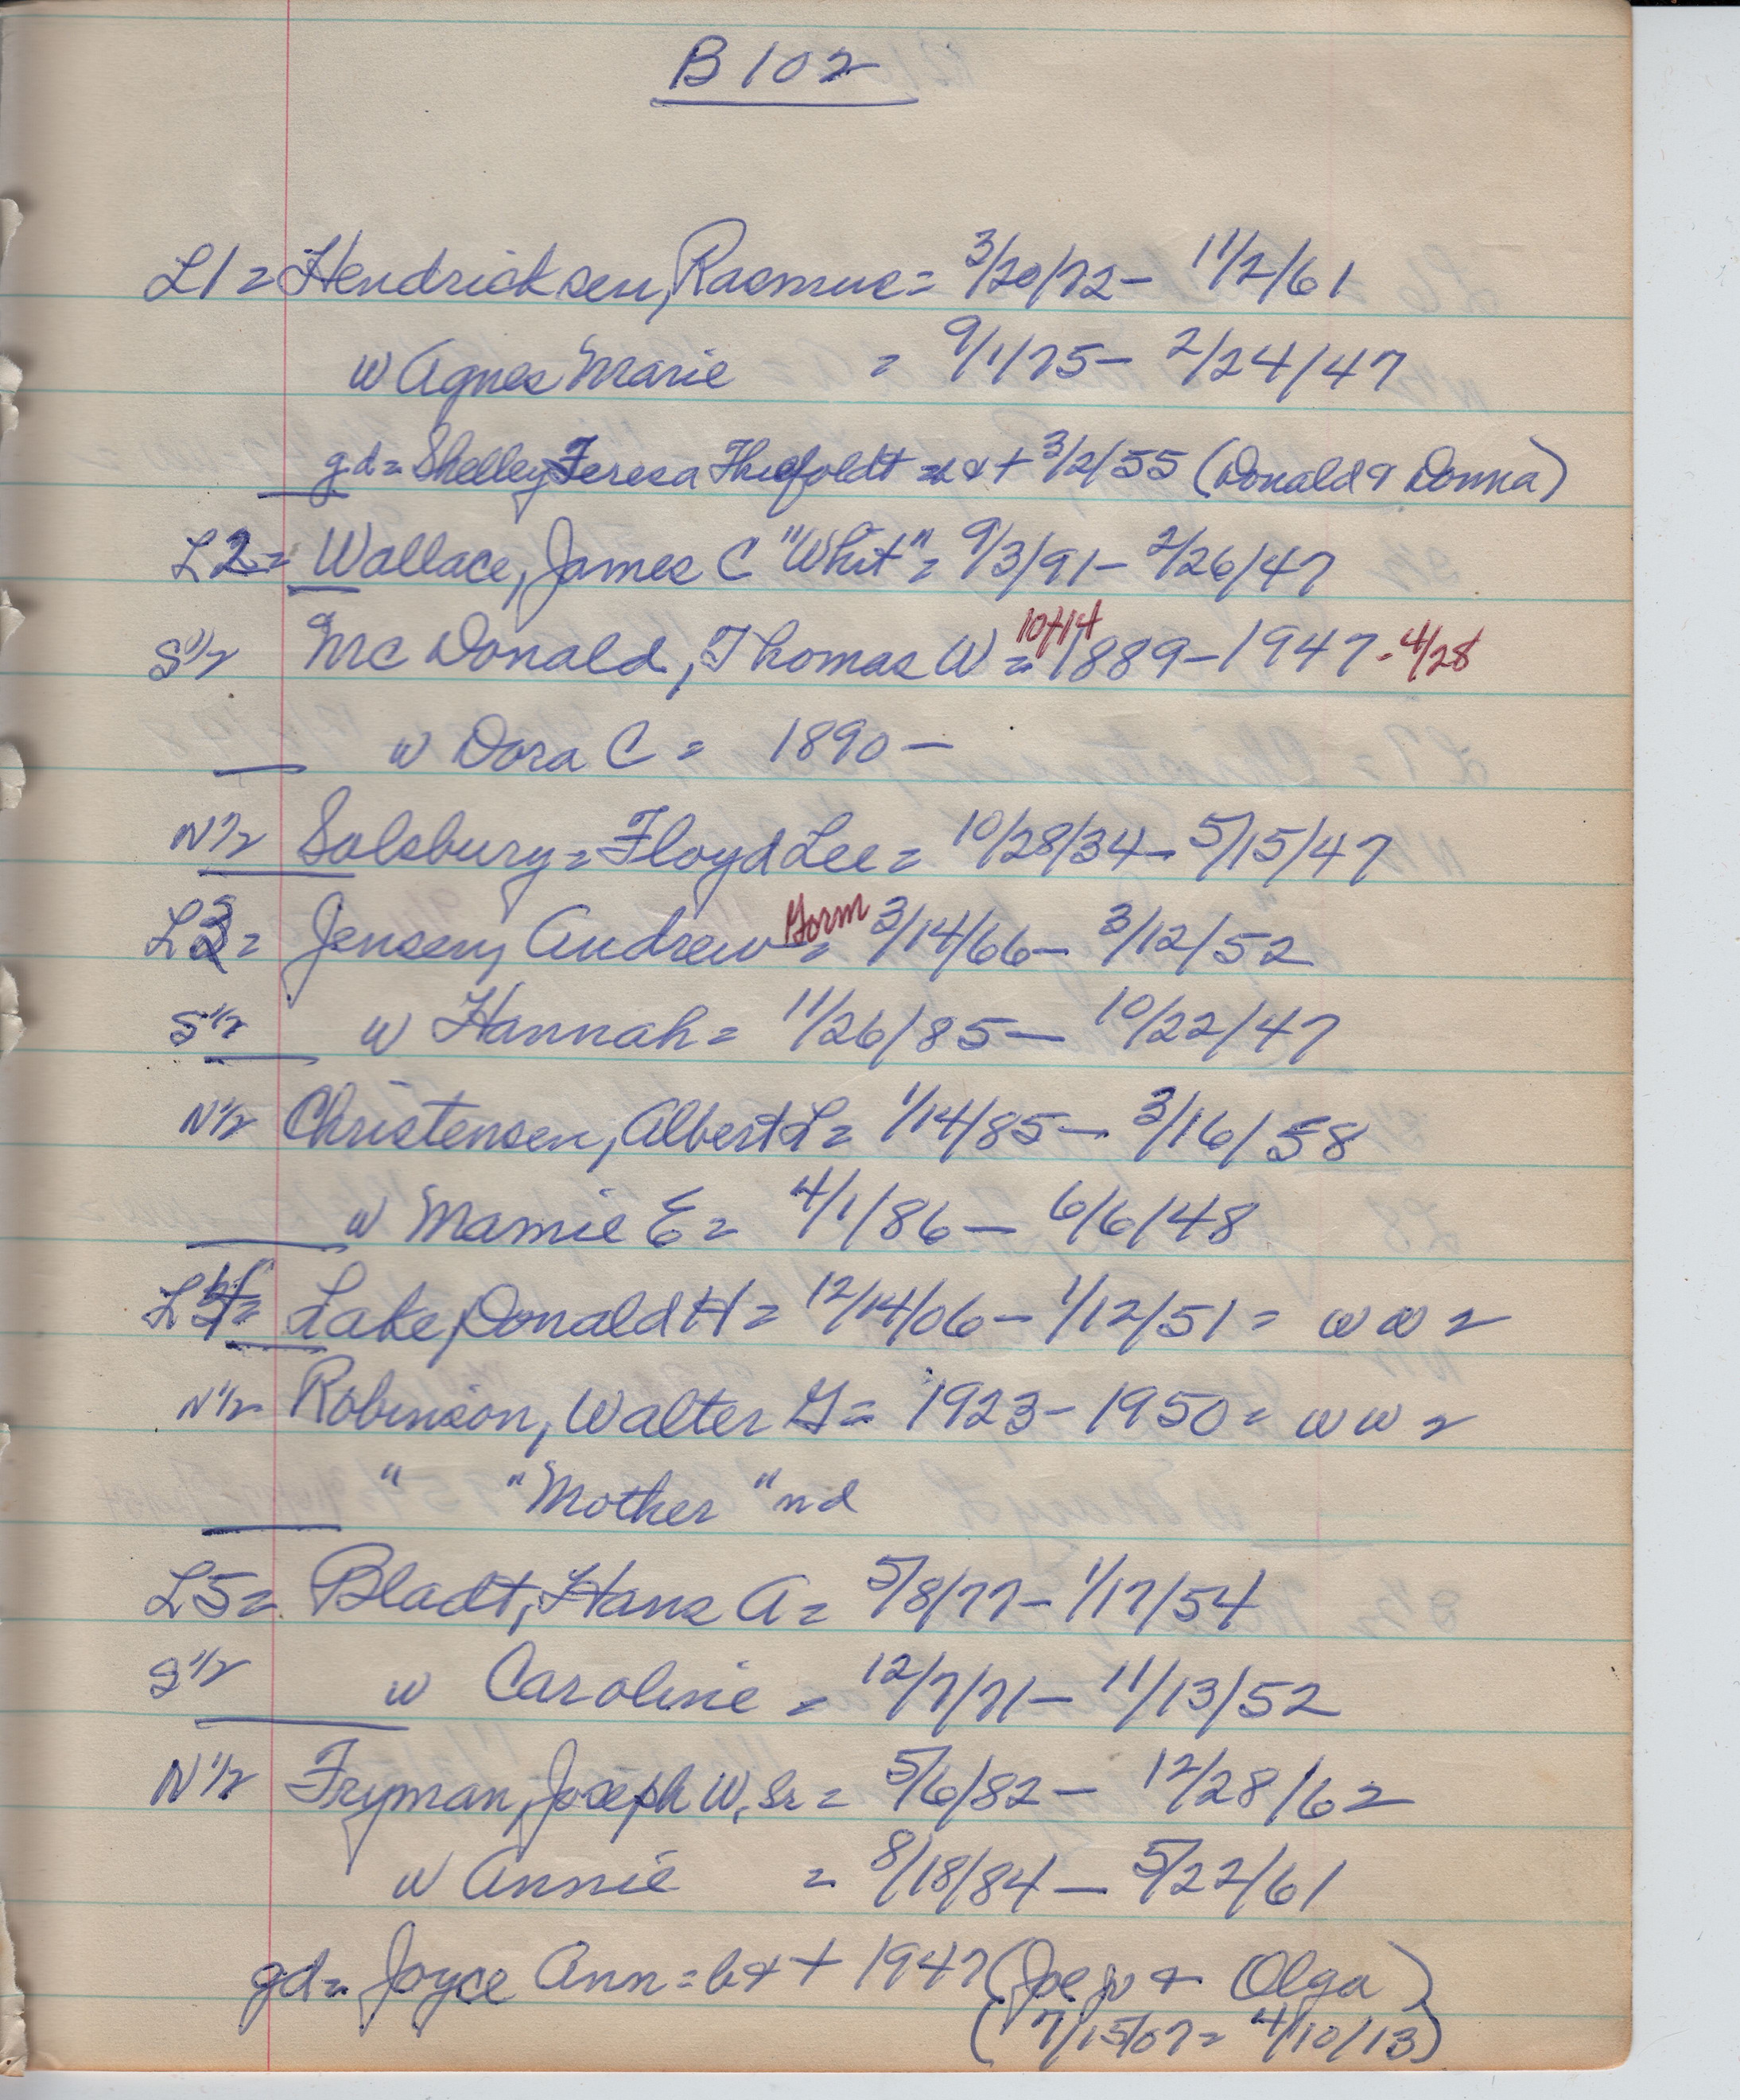 B 102
L1 = Hendricksen, Rasmus = 3/20/72 - 11/2/61
w Agnes Marie = 9/1/75 - 2/24/47
gd = Shelley Teresa = b&+ 3/2/55 (Donald & Donna)
L2 = Wallace, James C "Whit" = 9/3/91 - 2/26/47
S 1/2 McDonald, Thomas W = 10/14 1889 - 1947 - 4/28
w Dora C = 1890 -
N 1/2 Salsbury = Floyd Lee = 10/28/34 - 5/15/47
L3 = Jensen, Andrew Gorm = 3/14/66 - 3/12/52
S 1/2 w Hannah = 11/26/85 - 10/22/47
N 1/2 Christensen, Albert L = 1/14/85 - 3/16/58
w Mamie E = 4/1/86 - 6/6/48
L4 = Lake, Donald H = 12/14/06 - 1/12/51 = WW2
N 1/2 Robinson, Walter G = 1923 - 1950 = WW2
" "Mother" nd
L5 = Bladt, Hans A = 5/8/77 - 1/17/54
S 1/2 w Caroline = 12/7/71 - 11/13/52
N 1/2 Fryman, Joseph W, Sr = 5/6/82 - 12/28/62
w Annie = 8/18/84 - 5/22/61
gd = Joyce Ann = b&+ 1947 (Joe Jr & Olga)
(7/15/07 = 4/10/13)